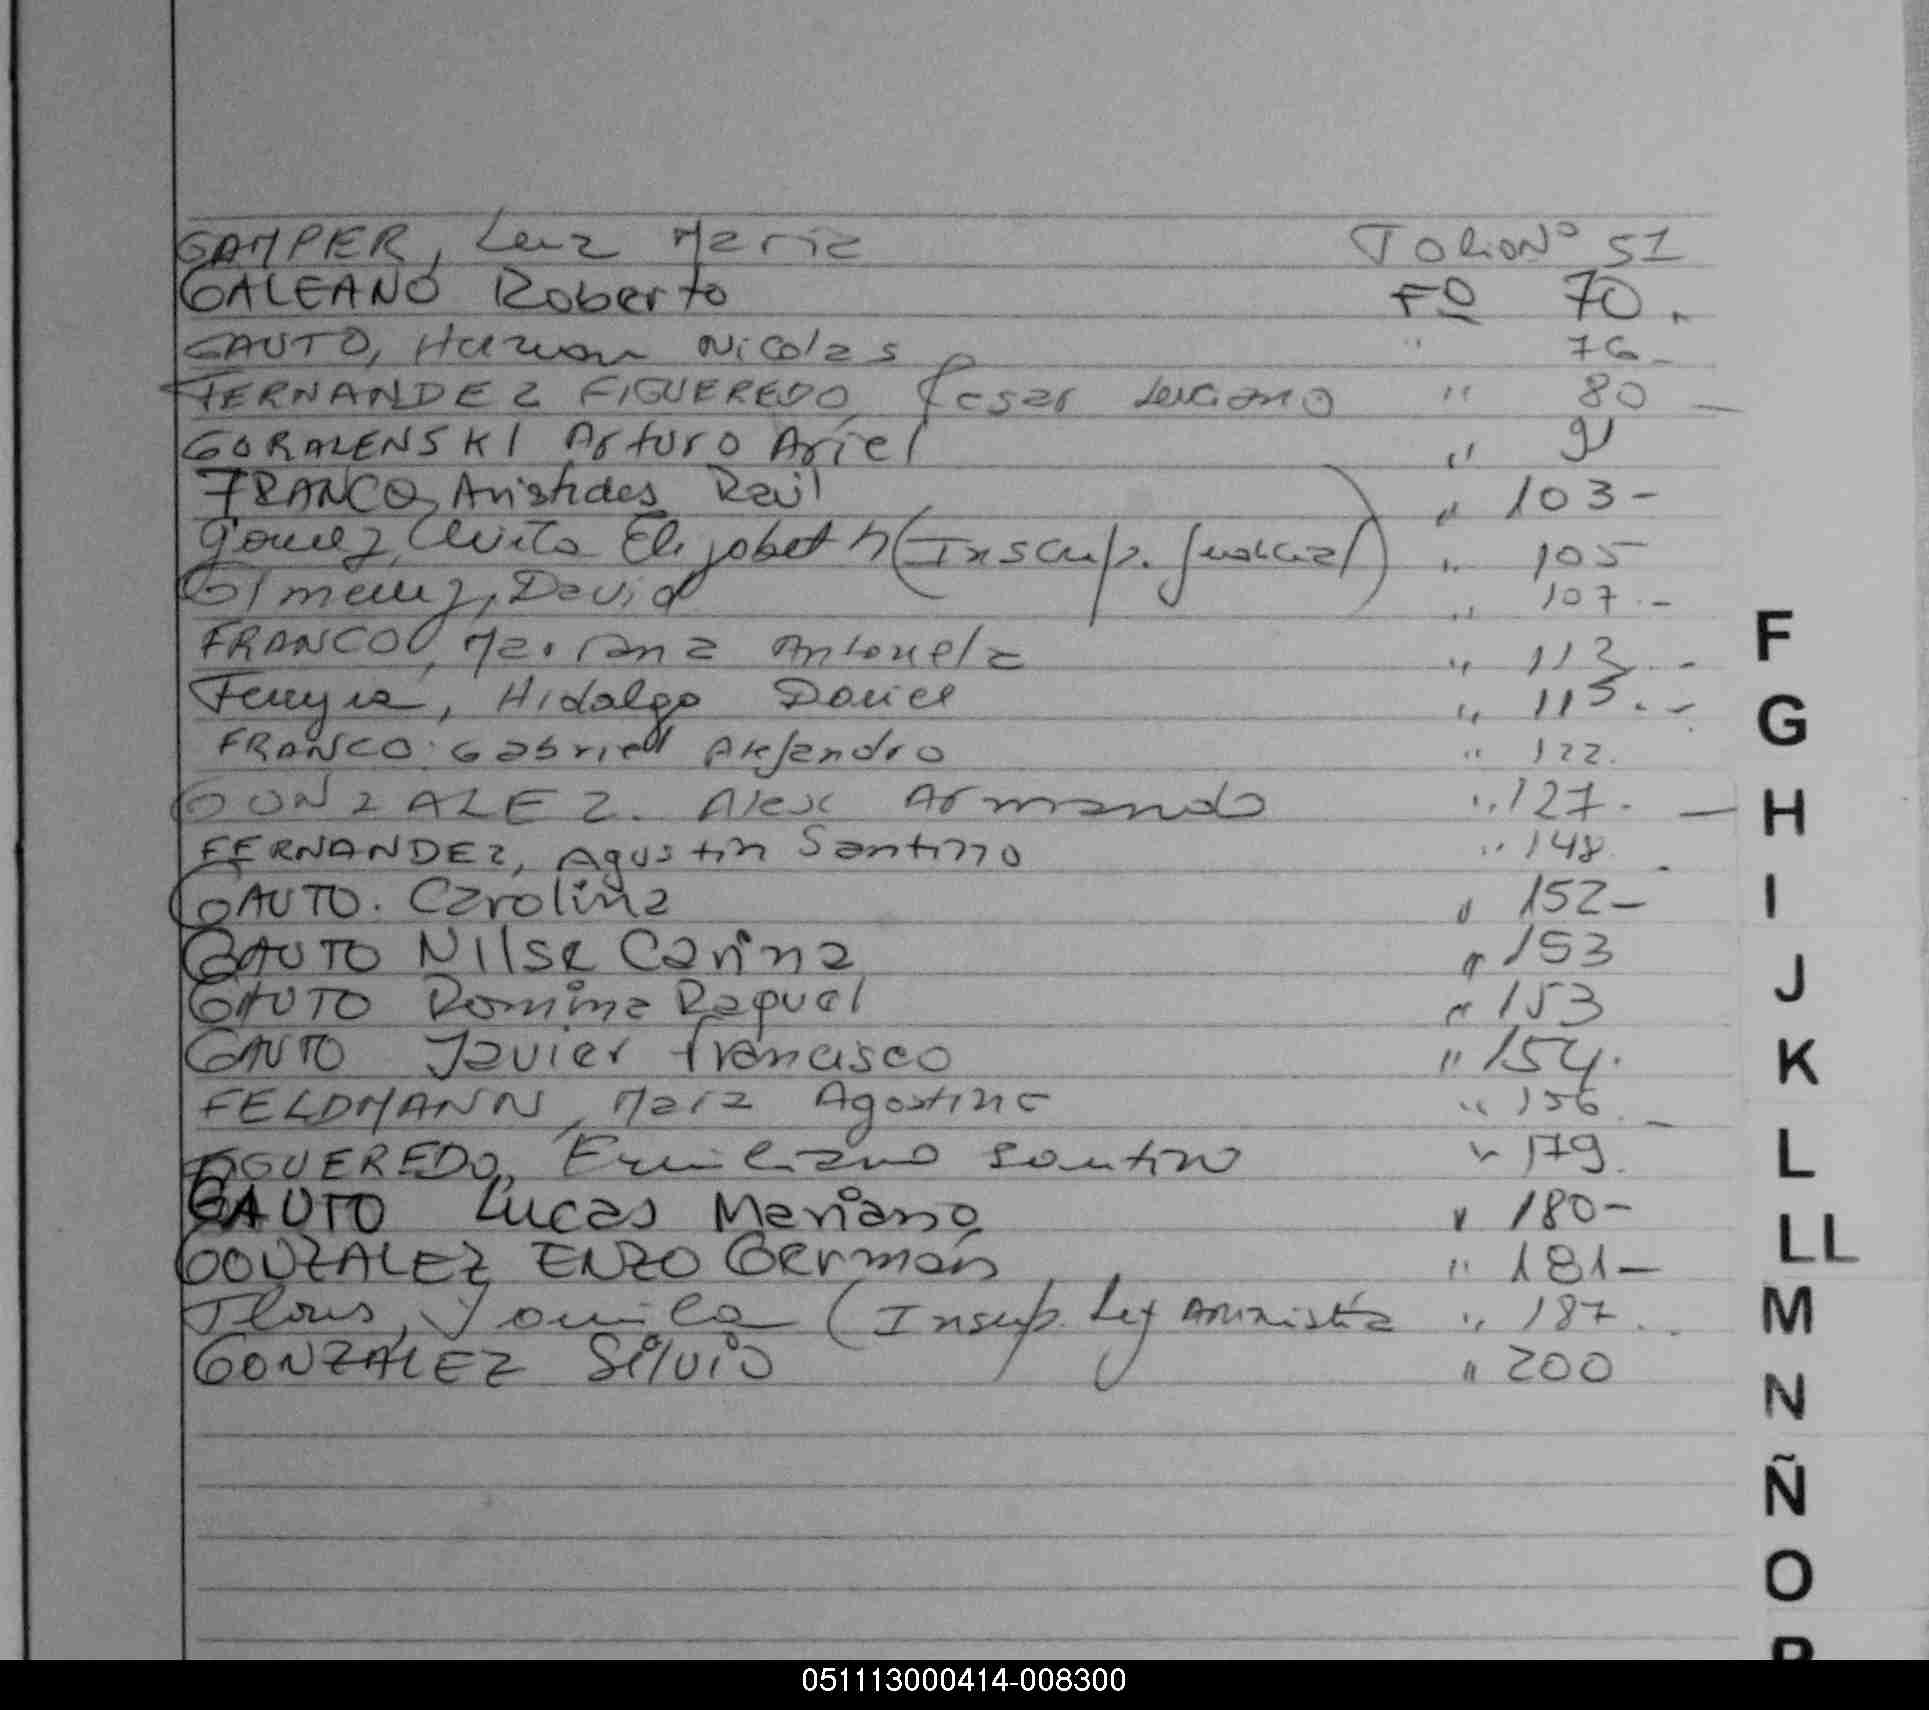 GAMPER, Luz Maria Folio Nº 51
GALEANO Roberto Fº 70.
GAUTO, Hernan Nicolas " 76-
FERNANDEZ FIGUEREDO, Cesar Luciano " 80 -
GORALENSKI Arturo Ariel " 91
FRANCO, Aristides Raúl " 103-
Gomez, Elizabeth (Inscrip. Judicial) " 105
Gimenez, David " 107.-
FRANCO, Mariana Antonela " 113.-
Ferreyra, Hidalgo Daniel " 115.-
FRANCO. Gabriel Alejandro " 122.
GONZALEZ. Alex Armando " 127.-
FERNANDEZ, Agustin Santino " 148.
GAUTO. Carolina " 152-
GAUTO Nilse Carina " 153
GAUTO Romina Raquel " 153
GAUTO Javier francisco " 154.
FELDMANN, Mara Agostina " 156.-
FIGUEREDO, Emiliano Santino " 179.
GAUTO Lucas Mariano " 180-
GONZALEZ ENZO Germán " 181-
Flores, (Inscrip. Ley " 187..
GONZALEZ Silvio " 200
F
G
H
I
J
K
L
LL
M
N
Ñ
O
P
051113000414-008300